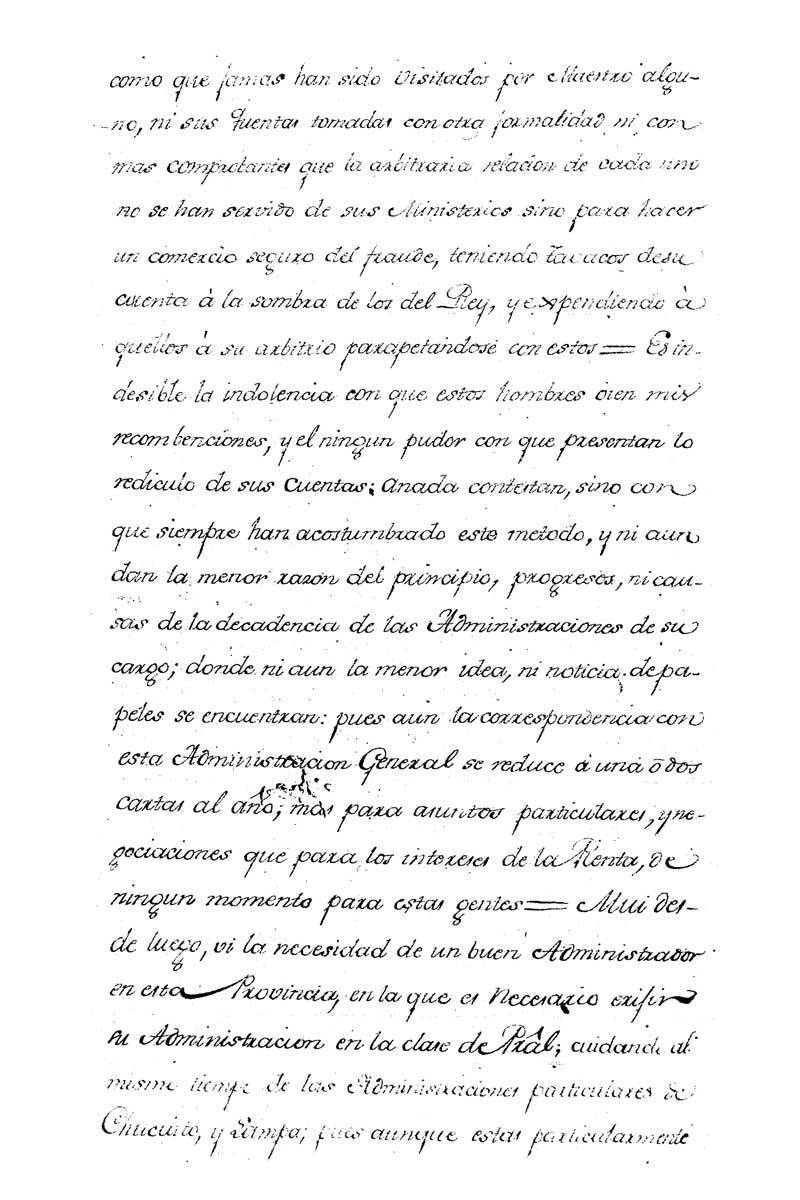 como que jamas han sido visitados por Maestro algu-
no, ni sus Quentas tomadas con otra formalidad ni con
mas comprobantes que la arbitraria relacion de cada uno
no se han servido de sus Ministerios sino para hacer
un comercio seguro del fraude, teniendo tavacos desu
cuenta à la sombra de los del Rey, y expendiendo à
quellos à su arbitrio parapetandose con estos = Es in-
desible la indolencia con que estos hombres oien mis
recombenciones, y el ningun pudor con que presentan lo
rediculo de sus Cuentas; anada contestan, sino con
que siempre han acostumbrado este metodo, y ni aun
dan la menor razon del principio, progresos, ni cau-
sas de la decadencia de las Administraciones de su
cargo; donde ni aun la menor idea, ni noticia de pa-
peles se encuentran: pues aun la correspondencia con
esta Administracion General se reduce à una ò dos
cartas al año; mas para asuntos particulares, y ne-
gociaciones que para los intereses de la Renta, de
ningun momento para estas gentes = Mui des-
de luego, vi la necesidad de un buen Administrador
en esta Provincia, en la que es necesario exisir
su Administracion en la clase de Prâl; cuidando al
mismo tiempo de las Administraciones particulares de
Chucuito, y Lampa; pues aunque estas particularmente